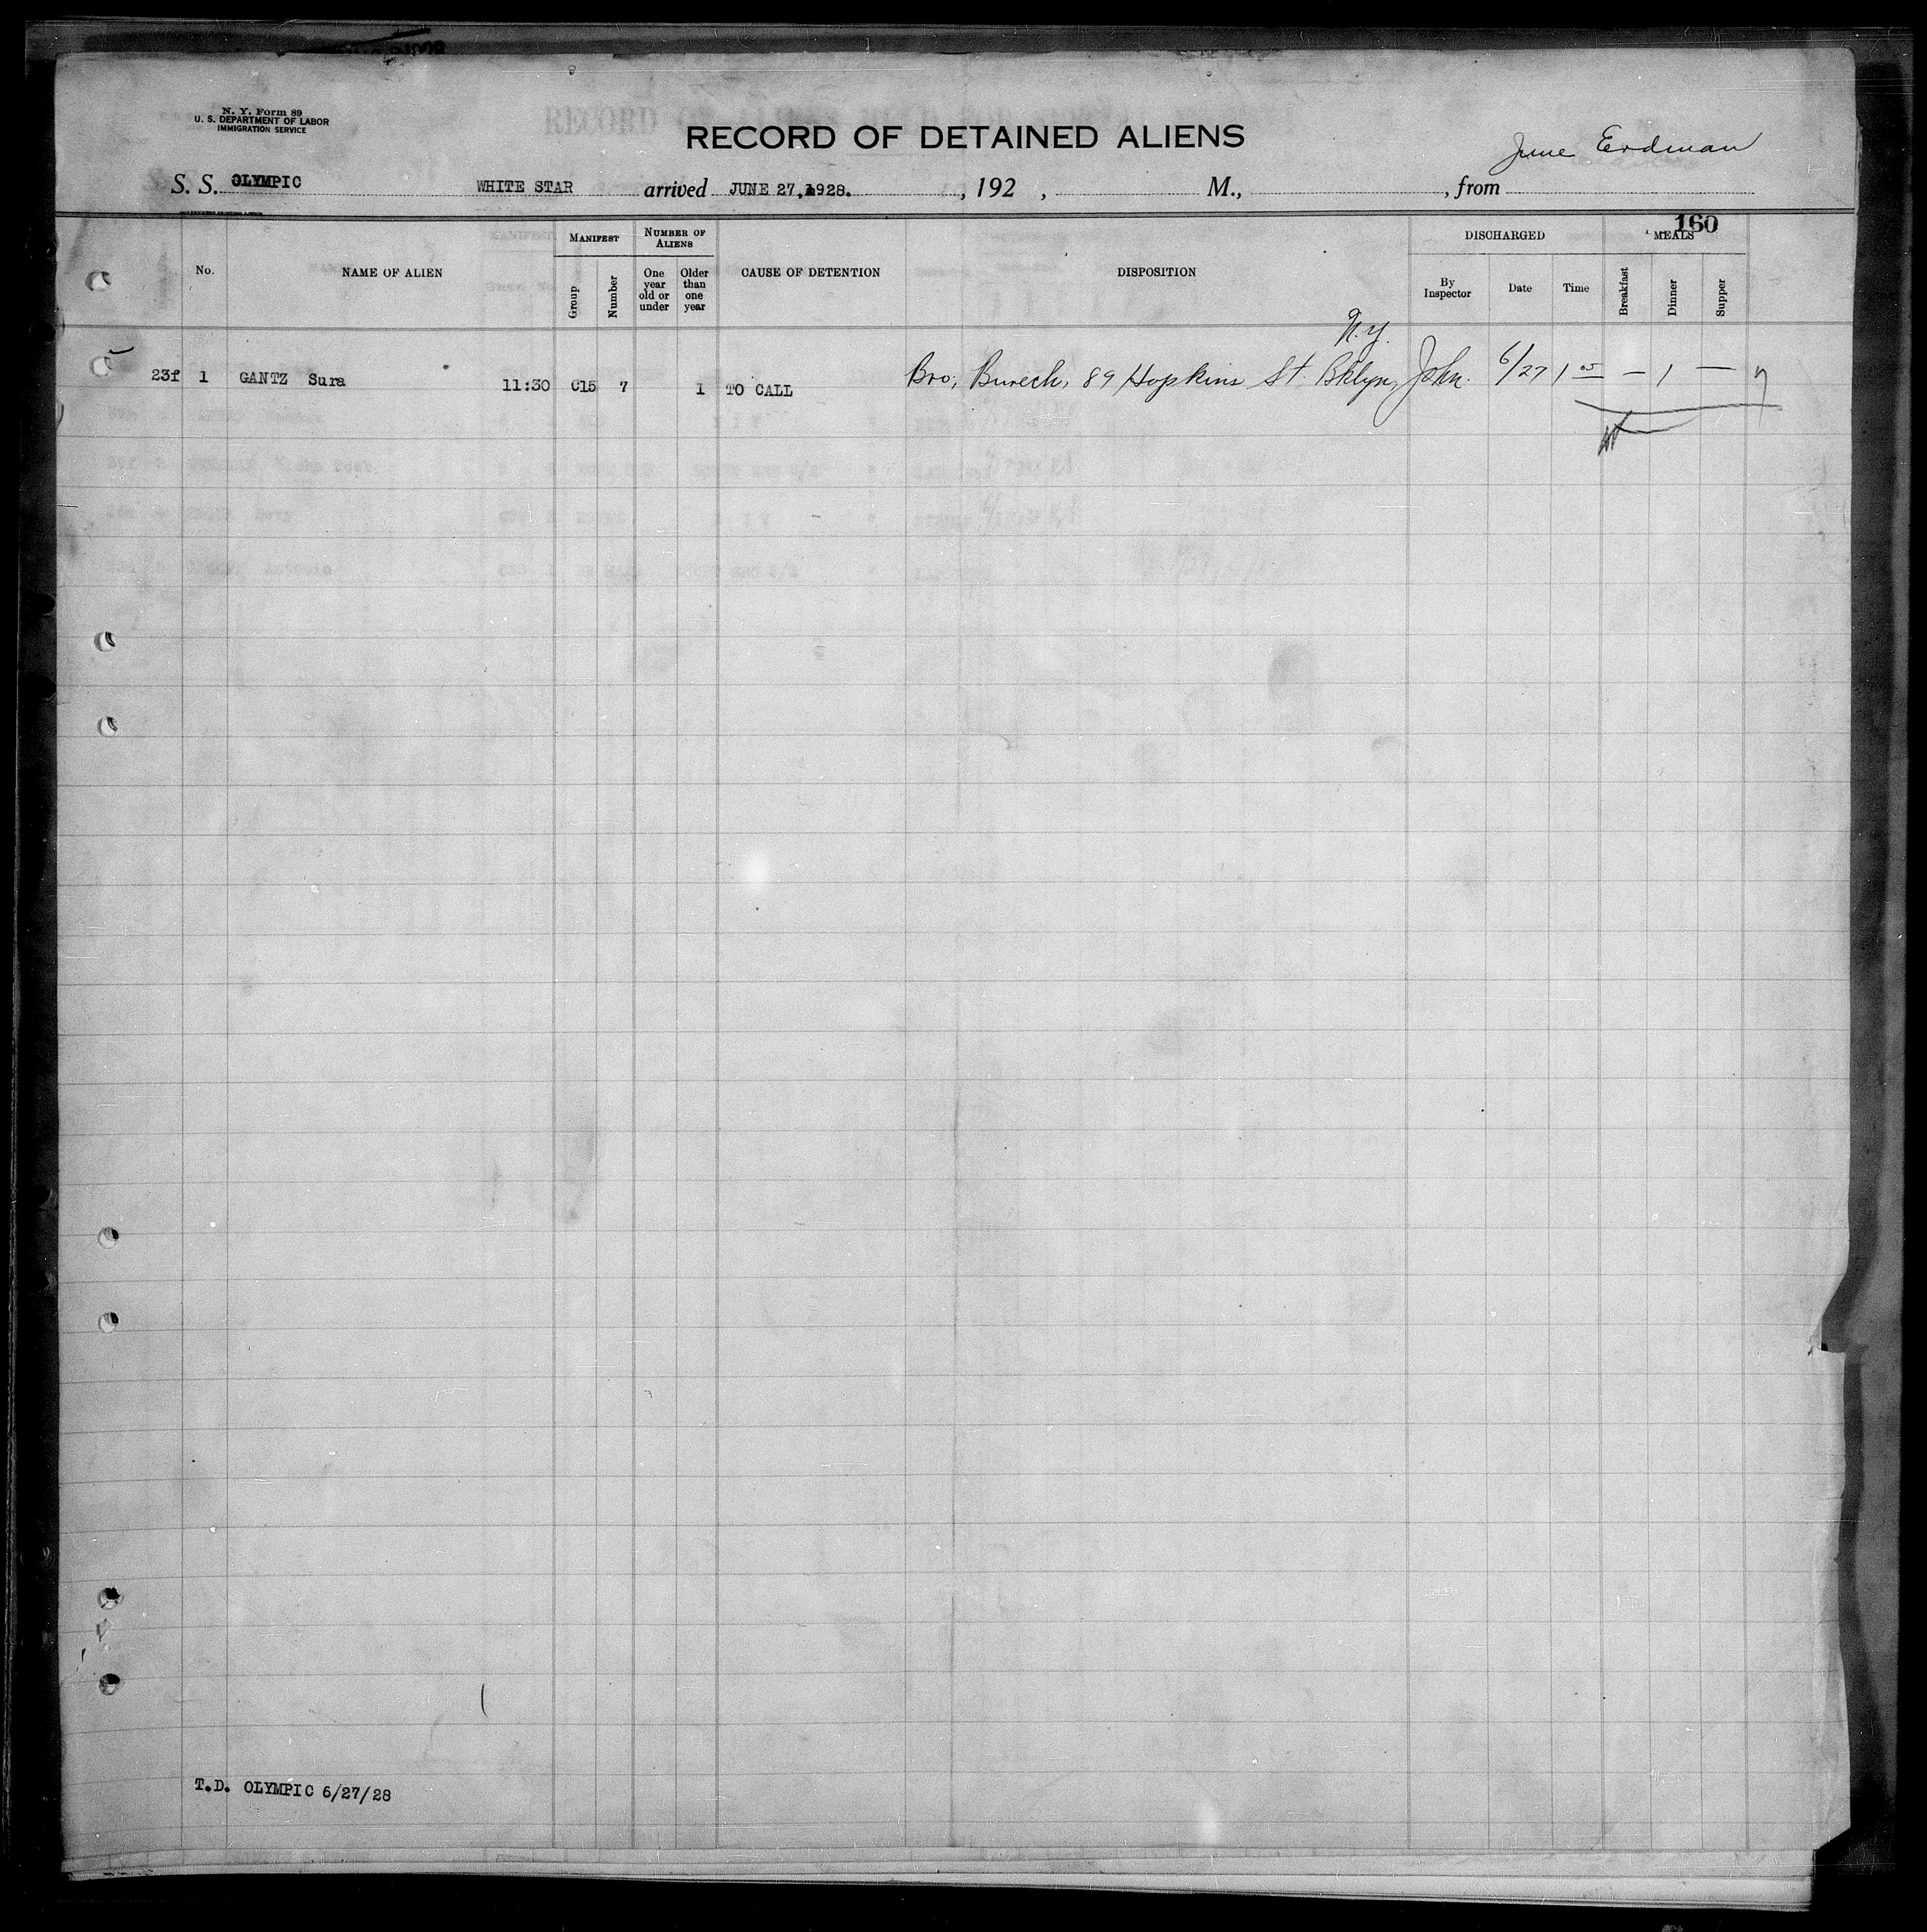 N. Y. Form 89
U. S. DEPARTMENT OF LABOR
IMMIGRATION SERVICE
RECORD OF DETAINED ALIENS
June Erdman
S. S. OLYMPIC WHITE STAR arrived JUNE 27, 1928. , 192 , M., , from
160
No. NAME OF ALIEN MANIFEST Group Number NUMBER OF ALIENS One year old or under Older than one year CAUSE OF DETENTION DISPOSITION DISCHARGED By Inspector Date Time MEALS Breakfast Dinner Supper
N.Y.
23f 1 GANTZ Sura 11:30 C15 7 1 TO CALL Bro, Burech, 89 Hopkins St. Bklyn, John. 6/27 1 05 — 1 —
T.D. OLYMPIC 6/27/28